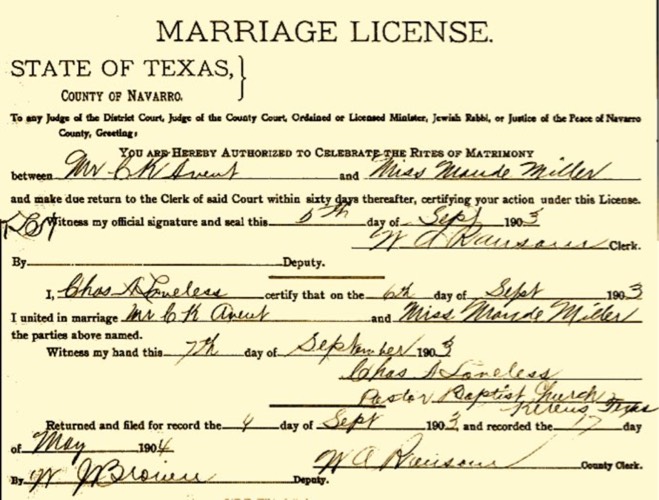 MARRIAGE LICENSE.
STATE OF TEXAS, }
COUNTY OF NAVARRO.
To any Judge of the District Court, Judge of the County Court, Ordained or Licensed Minister, Jewish Rabbi, or Justice of the Peace of Navarro
County, Greeting:
YOU ARE HEREBY AUTHORIZED TO CELEBRATE THE RITES OF MATRIMONY
between Mr C K Avent and Miss Maude Miller
and make due return to the Clerk of said Court within sixty days thereafter, certifying your action under this License.
Witness my official signature and seal this 5th day of Sept 1903
W A Ransom Clerk.
By Deputy.
I, Chas A Loveless certify that on the 6th day of Sept 1903
I united in marriage Mr C K Avent and Miss Maude Miller
the parties above named.
Witness my hand this 7th day of September 1903
Chas A Loveless
Pastor Baptist Church
Kerens, Texas
Returned and filed for record the day of Sept 1903 and recorded the 17 day
of May 1904 W A Ransom County Clerk.
By W J Brown Deputy.